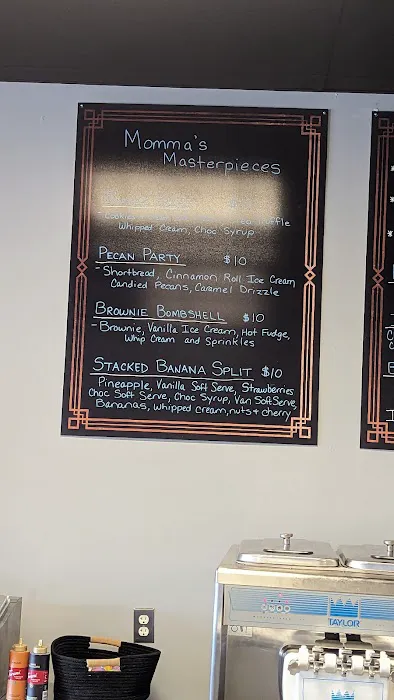 Momma's
Masterpieces
$
- Cookies
Whipped Cream, Choc Syrup
PECAN PARTY $10
- Shortbread, Cinnamon Roll Ice Cream
Candied Pecans, Caramel Drizzle
BROWNIE BOMBSHELL $10
- Brownie, Vanilla Ice Cream, Hot Fudge,
Whip Cream and Sprinkles
STACKED BANANA SPLIT $10
Pineapple, Vanilla Soft Serve, Strawberries
Choc Soft Serve, Choc Syrup, Van Soft Serve,
Bananas, whipped cream, nuts + cherry
TAYLOR